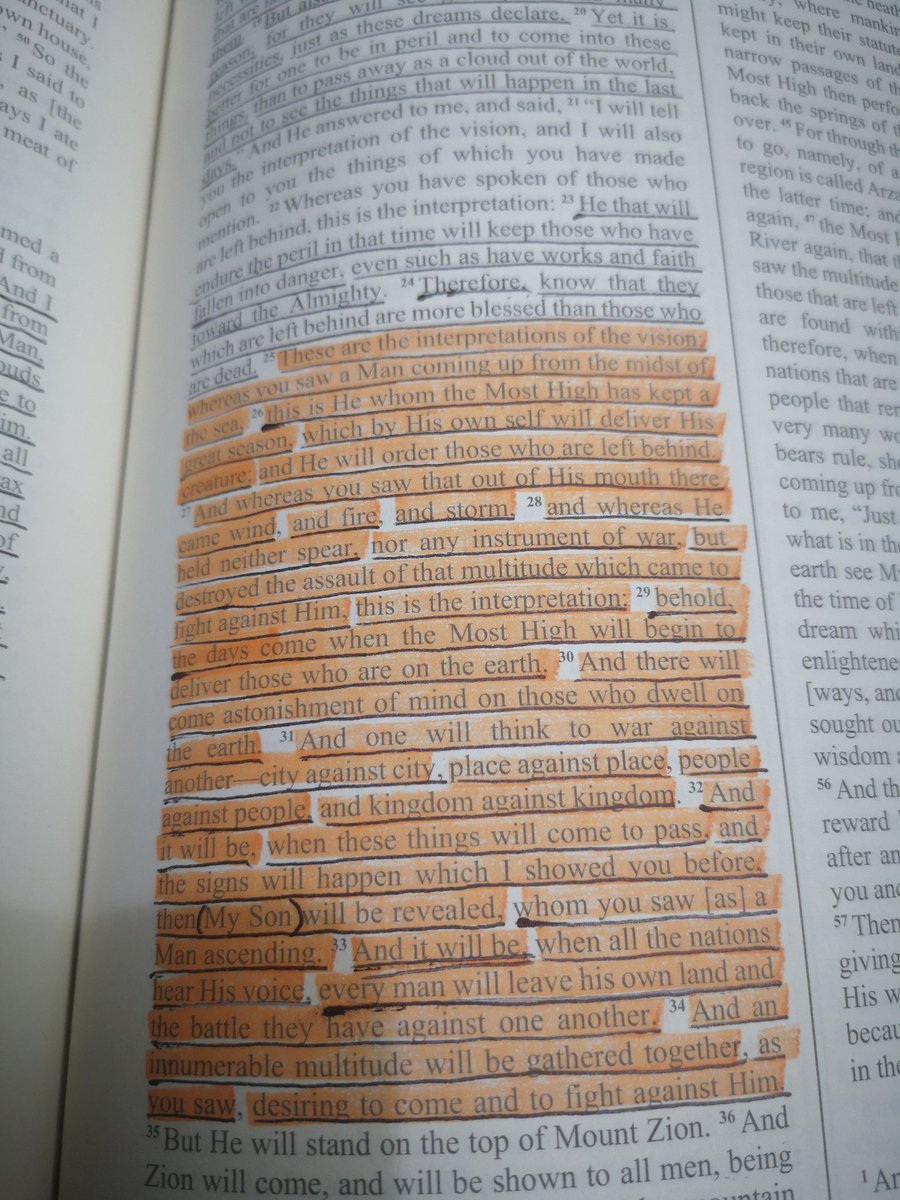 sanctuary.
own house,
50 So the
s I said to
, as [the
ays I ate
meat of
med a
d from
And I
from
Man,
ouds
e to
im.
all
ax
nd
of
them. 19 But
reason, for they will see
necessities, just as these dreams declare. 20 Yet it is
better for one to be in peril and to come into these
things, than to pass away as a cloud out of the world,
and not to see the things that will happen in the last
days." And He answered to me, and said, 21 "I will tell
you the interpretation of the vision, and I will also
open to you the things of which you have made
mention. 22 Whereas you have spoken of those who
are left behind, this is the interpretation: 23 He that will
endure the peril in that time will keep those who have
fallen into danger, even such as have works and faith
toward the Almighty. 24 Therefore, know that they
which are left behind are more blessed than those who
are dead. 25 These are the interpretations of the vision:
whereas you saw a Man coming up from the midst of
the sea, 26 this is He whom the Most High has kept a
great season, which by His own self will deliver His
creature; and He will order those who are left behind.
27 And whereas you saw that out of His mouth there
came wind, and fire, and storm, 28 and whereas He
held neither spear, nor any instrument of war, but
destroyed the assault of that multitude which came to
fight against Him, this is the interpretation: 29 behold,
the days come when the Most High will begin to
deliver those who are on the earth. 30 And there will
come astonishment of mind on those who dwell on
the earth. 31 And one will think to war against
another—city against city, place against place, people
against people, and kingdom against kingdom. 32 And
it will be, when these things will come to pass, and
the signs will happen which I showed you before,
then (My Son) will be revealed, whom you saw [as] a
Man ascending. 33 And it will be, when all the nations
hear His voice, every man will leave his own land and
the battle they have against one another. 34 And an
innumerable multitude will be gathered together, as
you saw, desiring to come and to fight against Him.
35 But He will stand on the top of Mount Zion. 36 And
Zion will come, and will be shown to all men, being
might keep their statute
kept in their own land
narrow passages of the
Most High then perfo
back the springs of th
over. 45 For through th
to go, namely, of a
region is called Arza
the latter time; and
again, 47 the Most H
River again, that th
saw the multitude
those that are left
are found with
therefore, when
nations that are
people that rem
very many wo
bears rule, she
coming up fro
to me, "Just
what is in the
earth see My
the time of
dream whi
enlightene
[ways, and
sought ou
wisdom a
56 And th
reward
after an
you and
57 Then
giving
His w
becau
in the
1 An